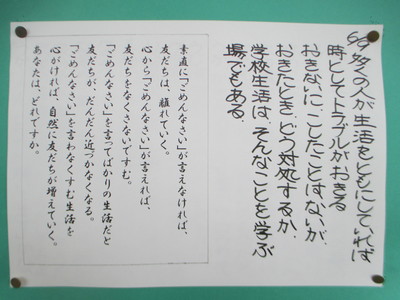 6/9 多くの人が生活をともにしていれば
時としてトラブルがおきる
おきないにこしたことはないが、
おきたとき、どう対処するか、
学校生活は、そんなことを学ぶ
場でもある。
素直に「ごめんなさい」が言えなければ、
友だちは、離れていく。
心から「ごめんなさい」が言えれば、
友だちをなくさないですむ。
「ごめんなさい」を言ってばかりの生活だと
友だちが、だんだん近づかなくなる。
「ごめんなさい」を言わなくすむ生活を
心がければ、自然に友だちが増えていく。
あなたは、どれですか。